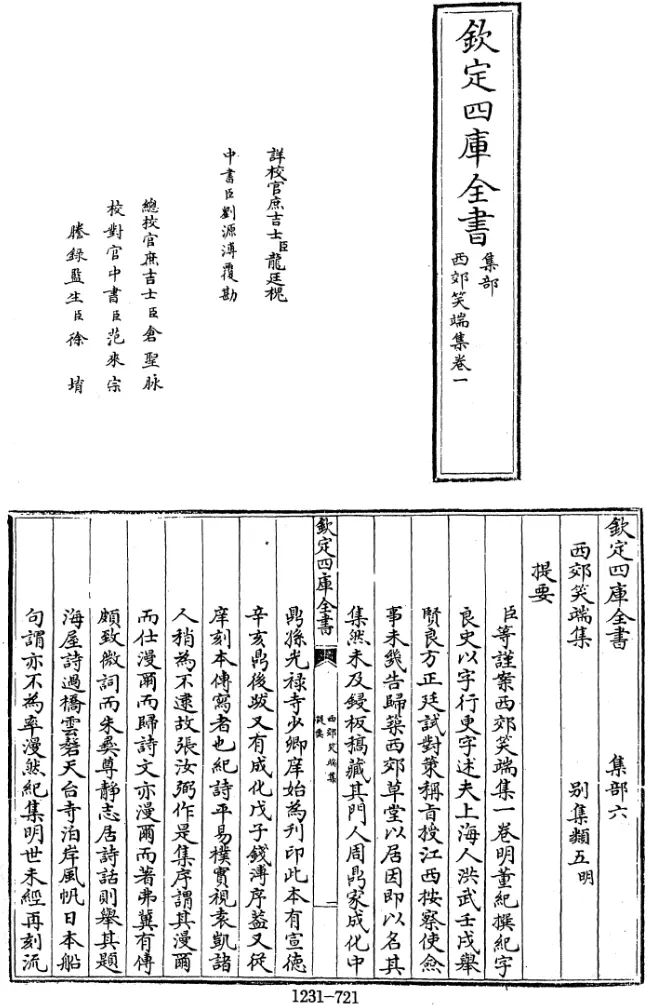 欽定四庫全書
集部
西郊笑端集卷一
詳校官庶吉士臣龍廷槐
中書臣劉源溥覆勘
總校官庶吉士臣倉聖脉
校對官中書臣范來宗
謄錄監生臣徐堉
欽定四庫全書 集部六
西郊笑端集 别集類五明
提要
臣等謹案西郊笑端集一卷明董紀撰紀字
良史以字行更字述夫上海人洪武壬戌舉
賢良方正廷試對策稱旨授江西按察使僉
事未幾告歸築西郊草堂以居因即以名其
集然未及鋟板稿藏其門人周鼎家成化中
欽定四庫全書
西郊笑端集
提要
一
鼎孫光禄寺少卿庠始為刋印此本有宣德
辛亥鼎後跋又有成化戊子錢溥序葢又從
庠刻本傳寫者也紀詩平易樸實視袁凱諸
人稍為不逮故張汝弼作是集序謂其漫爾
而仕漫爾而歸詩文亦漫爾而著弗冀有傳
頗致微詞而朱彛尊静志居詩話則舉其題
海屋詩過橋雲磬天台寺泊岸風帆日本船
句謂亦不為率漫然紀集明世未經再刻流
1231-721